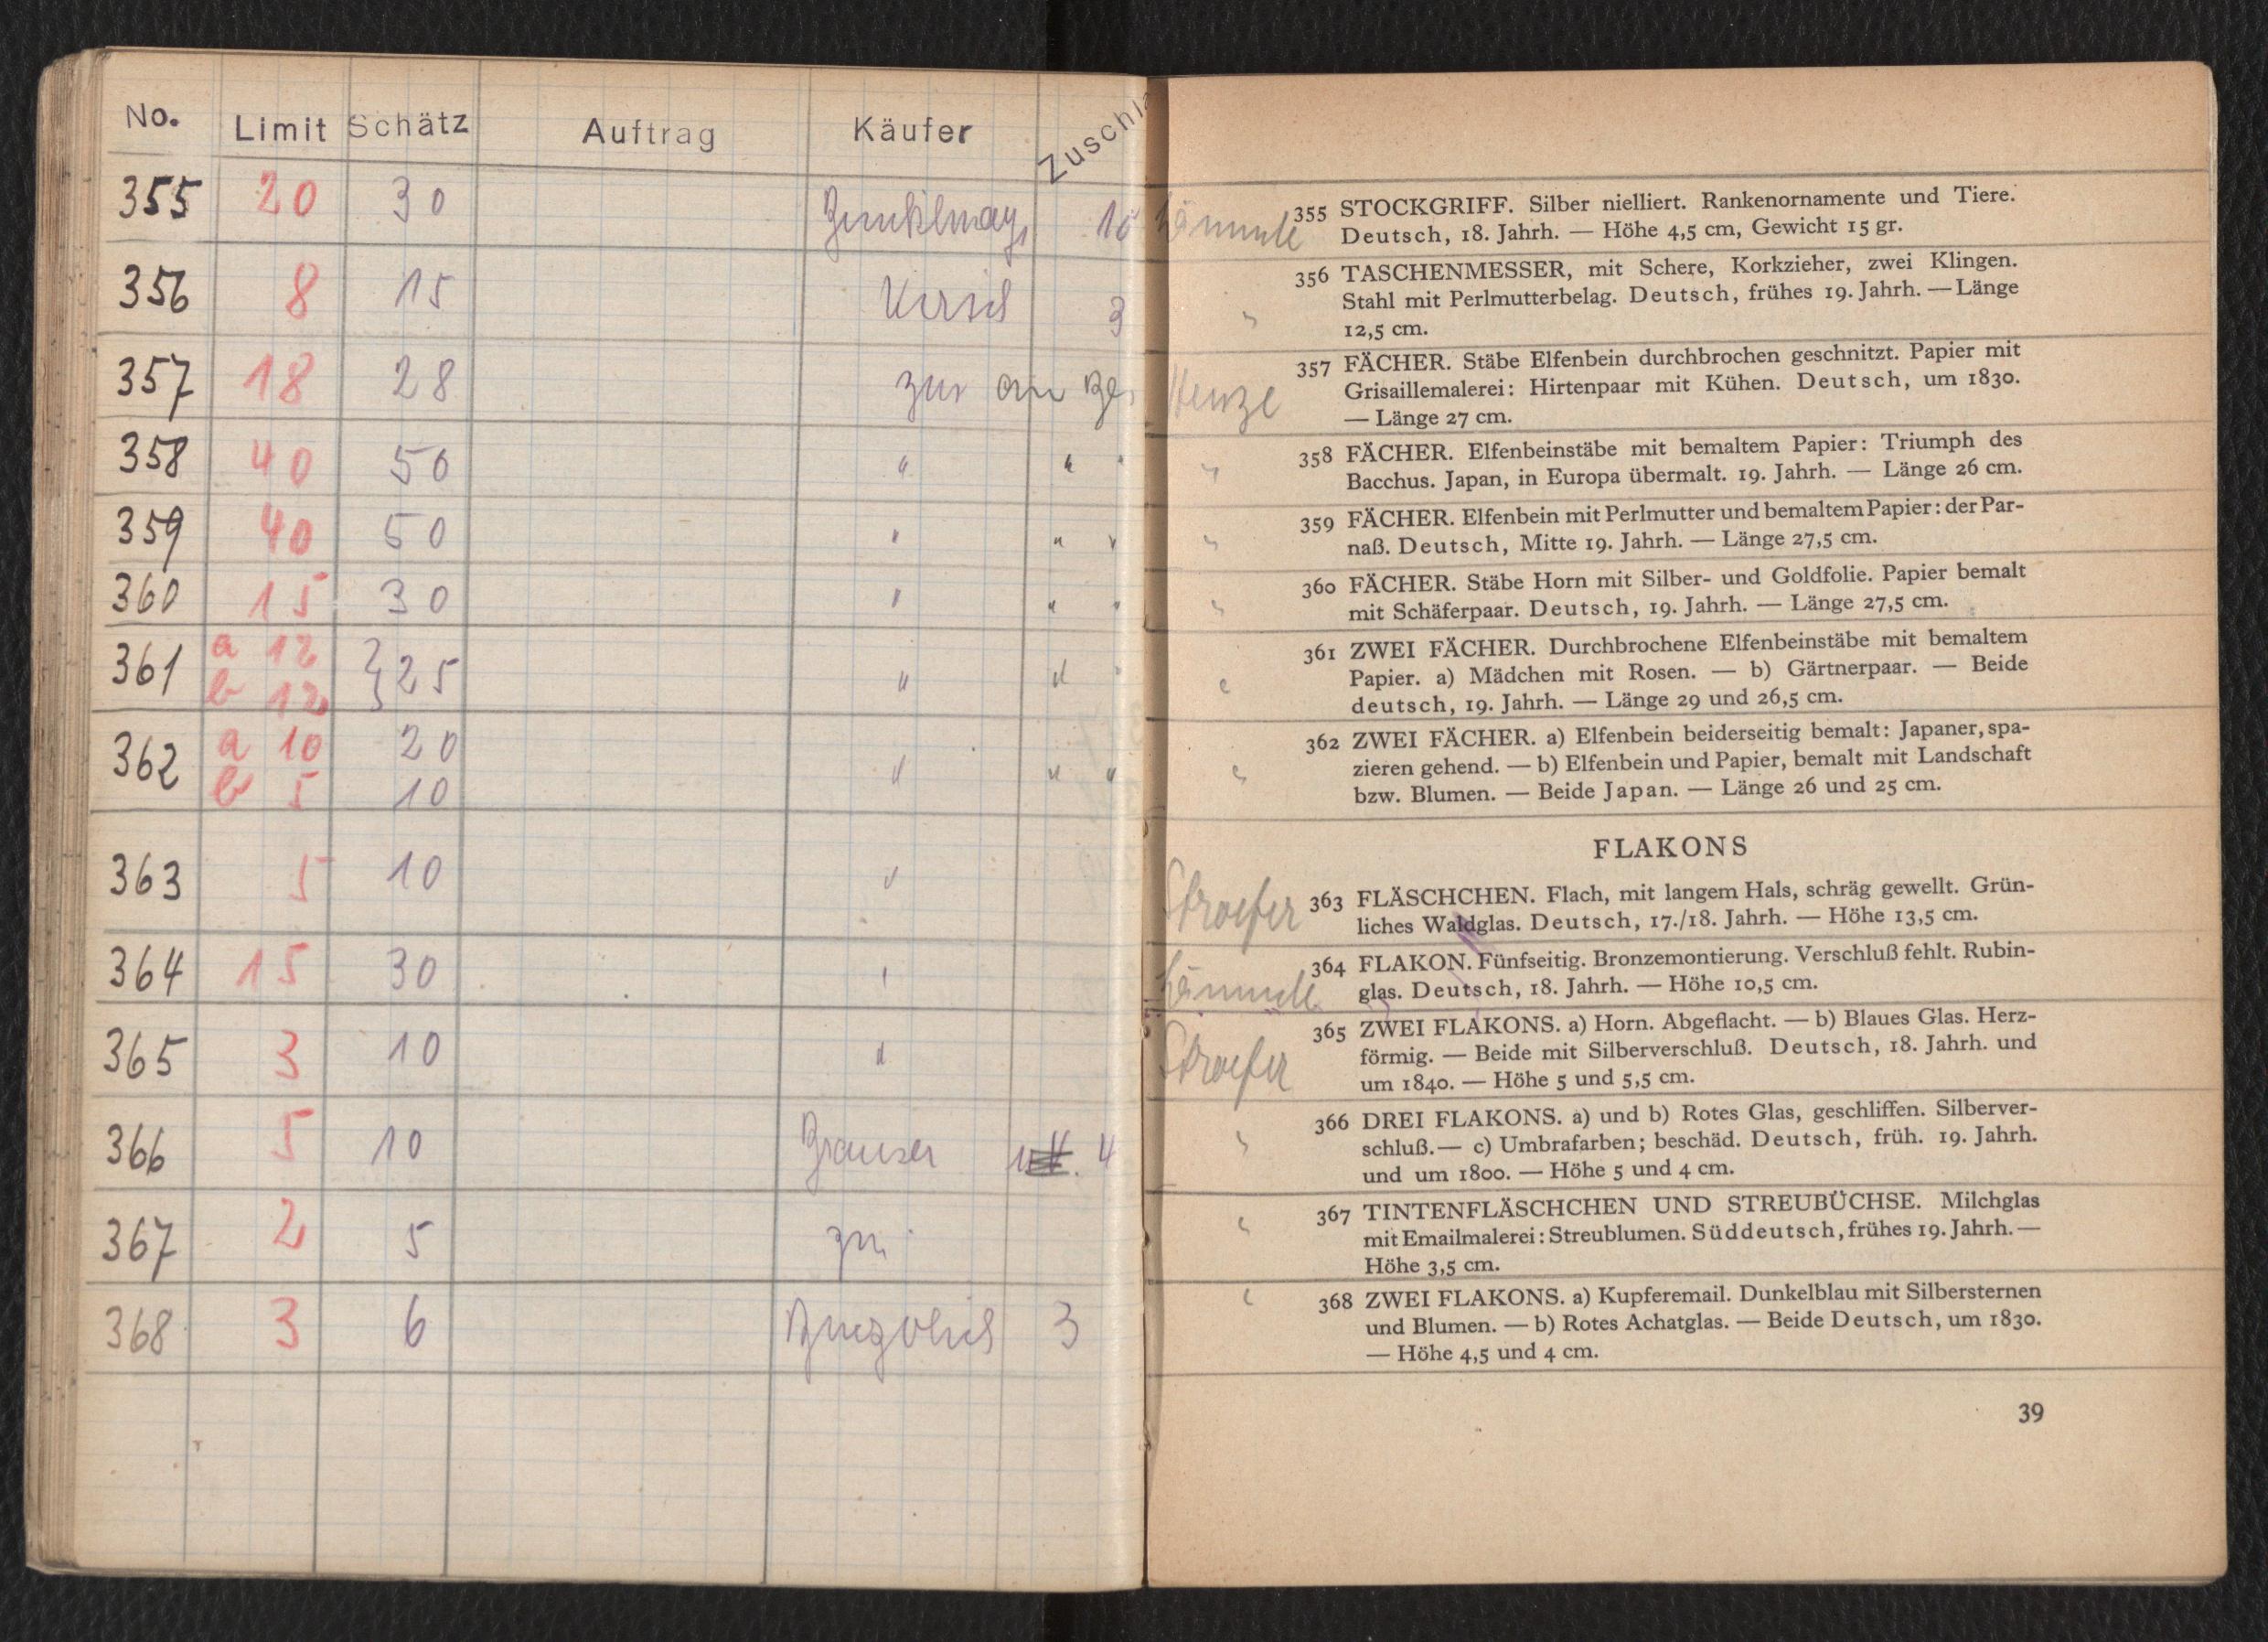 No. Limit Schätz Auftrag Käufer Zuschla
355 20 30
356 8 15 3
357 18 28 zur an
358 40 50 " " "
359 40 50 " " "
360 15 30 " " "
361 a 12 b 12 } 25 " " "
362 a 10 20 " " "
b 5 10
363 5 10 "
364 15 30 "
365 3 10 "
366 5 10 4
367 2 5
368 3 6 3
355 STOCKGRIFF. Silber nielliert. Rankenornamente und Tiere.
Deutsch, 18. Jahrh. — Höhe 4,5 cm, Gewicht 15 gr.
356 TASCHENMESSER, mit Schere, Korkzieher, zwei Klingen.
" Stahl mit Perlmutterbelag. Deutsch, frühes 19. Jahrh. — Länge
12,5 cm.
357 FÄCHER. Stäbe Elfenbein durchbrochen geschnitzt. Papier mit
Henze Grisaillemalerei: Hirtenpaar mit Kühen. Deutsch, um 1830.
— Länge 27 cm.
" 358 FÄCHER. Elfenbeinstäbe mit bemaltem Papier: Triumph des
Bacchus. Japan, in Europa übermalt. 19. Jahrh. — Länge 26 cm.
359 FÄCHER. Elfenbein mit Perlmutter und bemaltem Papier: der Par-
" naß. Deutsch, Mitte 19. Jahrh. — Länge 27,5 cm.
360 FÄCHER. Stäbe Horn mit Silber- und Goldfolie. Papier bemalt
" mit Schäferpaar. Deutsch, 19. Jahrh. — Länge 27,5 cm.
361 ZWEI FÄCHER. Durchbrochene Elfenbeinstäbe mit bemaltem
" Papier. a) Mädchen mit Rosen. — b) Gärtnerpaar. — Beide
deutsch, 19. Jahrh. — Länge 29 und 26,5 cm.
362 ZWEI FÄCHER. a) Elfenbein beiderseitig bemalt: Japaner, spa-
" zieren gehend. — b) Elfenbein und Papier, bemalt mit Landschaft
bzw. Blumen. — Beide Japan. — Länge 26 und 25 cm.
FLAKONS
Stroefer 363 FLÄSCHCHEN. Flach, mit langem Hals, schräg gewellt. Grün-
liches Waldglas. Deutsch, 17./18. Jahrh. — Höhe 13,5 cm.
364 FLAKON. Fünfseitig. Bronzemontierung. Verschluß fehlt. Rubin-
glas. Deutsch, 18. Jahrh. — Höhe 10,5 cm.
365 ZWEI FLAKONS. a) Horn. Abgeflacht. — b) Blaues Glas. Herz-
Stroefer förmig. — Beide mit Silberverschluß. Deutsch, 18. Jahrh. und
um 1840. — Höhe 5 und 5,5 cm.
366 DREI FLAKONS. a) und b) Rotes Glas, geschliffen. Silberver-
" schluß. — c) Umbrafarben; beschäd. Deutsch, früh. 19. Jahrh.
und um 1800. — Höhe 5 und 4 cm.
" 367 TINTENFLÄSCHCHEN UND STREUBÜCHSE. Milchglas
mit Emailmalerei: Streublumen. Süddeutsch, frühes 19. Jahrh. —
Höhe 3,5 cm.
" 368 ZWEI FLAKONS. a) Kupferemail. Dunkelblau mit Silbersternen
und Blumen. — b) Rotes Achatglas. — Beide Deutsch, um 1830.
— Höhe 4,5 und 4 cm.
39